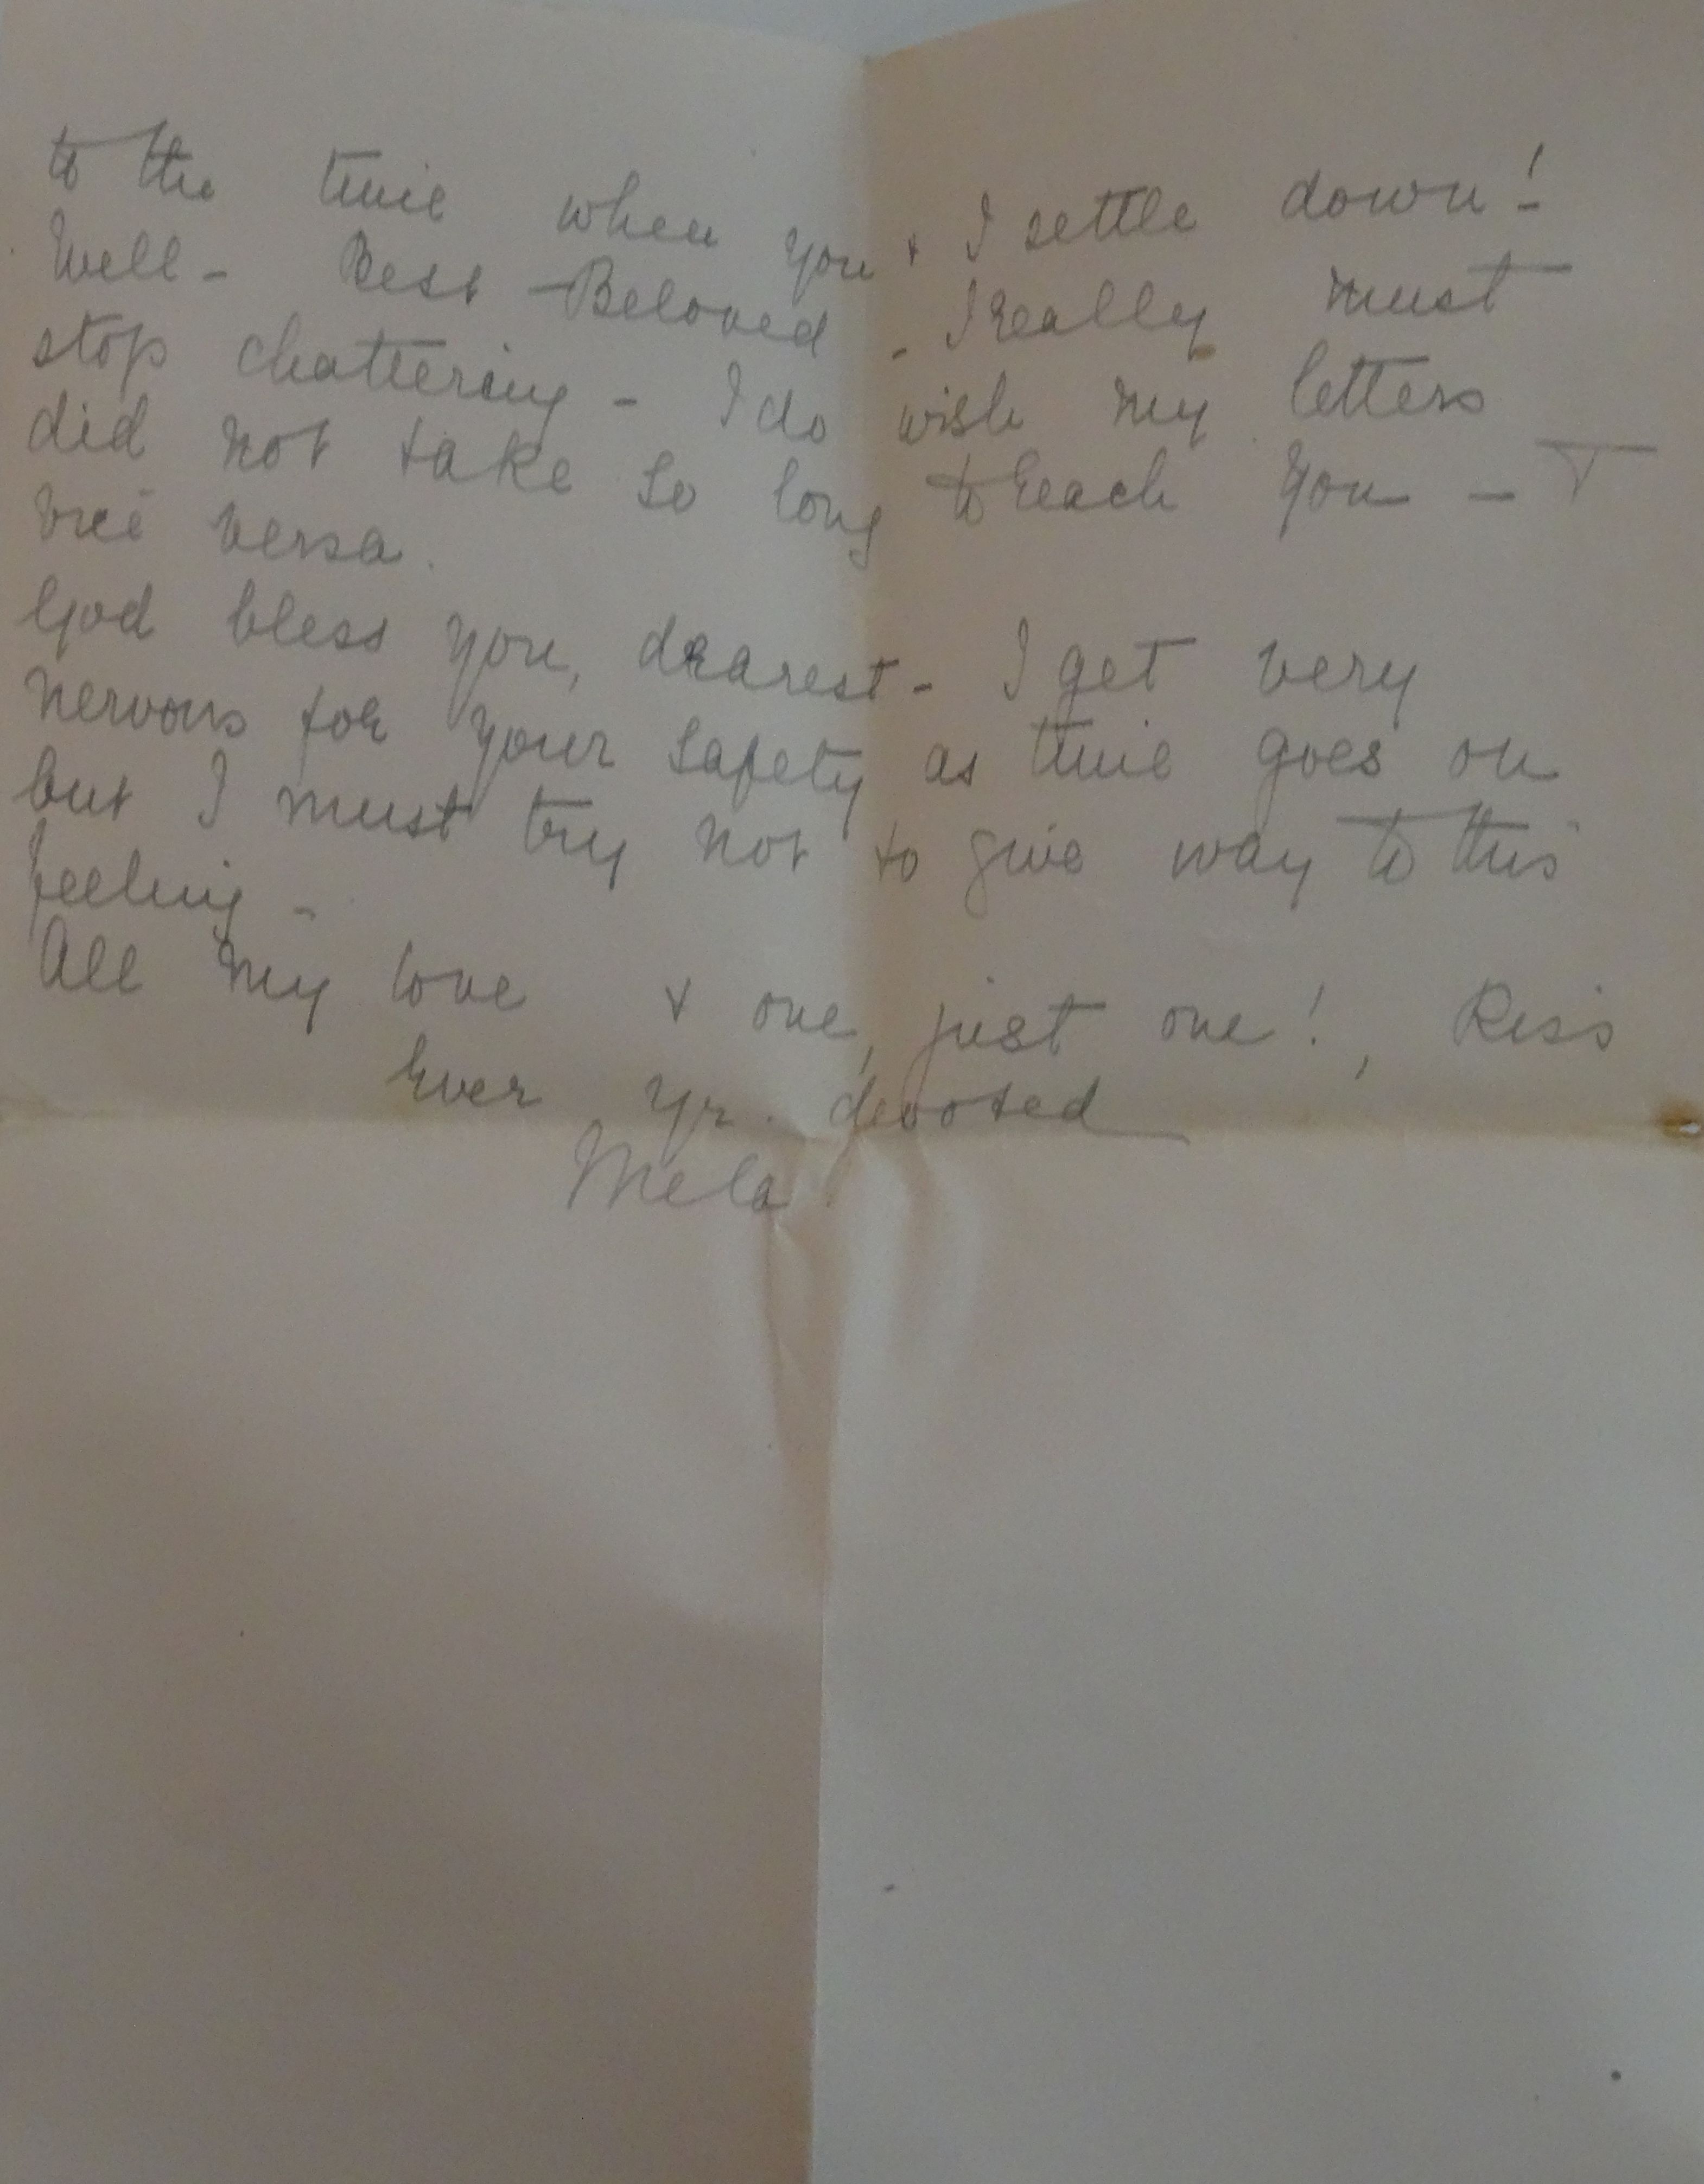 to the time when you + I settle down!
Well - Best - Beloved - I really must
stop chattering - I do wish my letters
did not take so long to reach you - +
vice versa.
God bless you, dearest - I get very
nervous for your safety as time goes on
but I must try not to give way to this
feeling -
All my love + one, just one!, Kiss
Ever yr. devoted
Mela